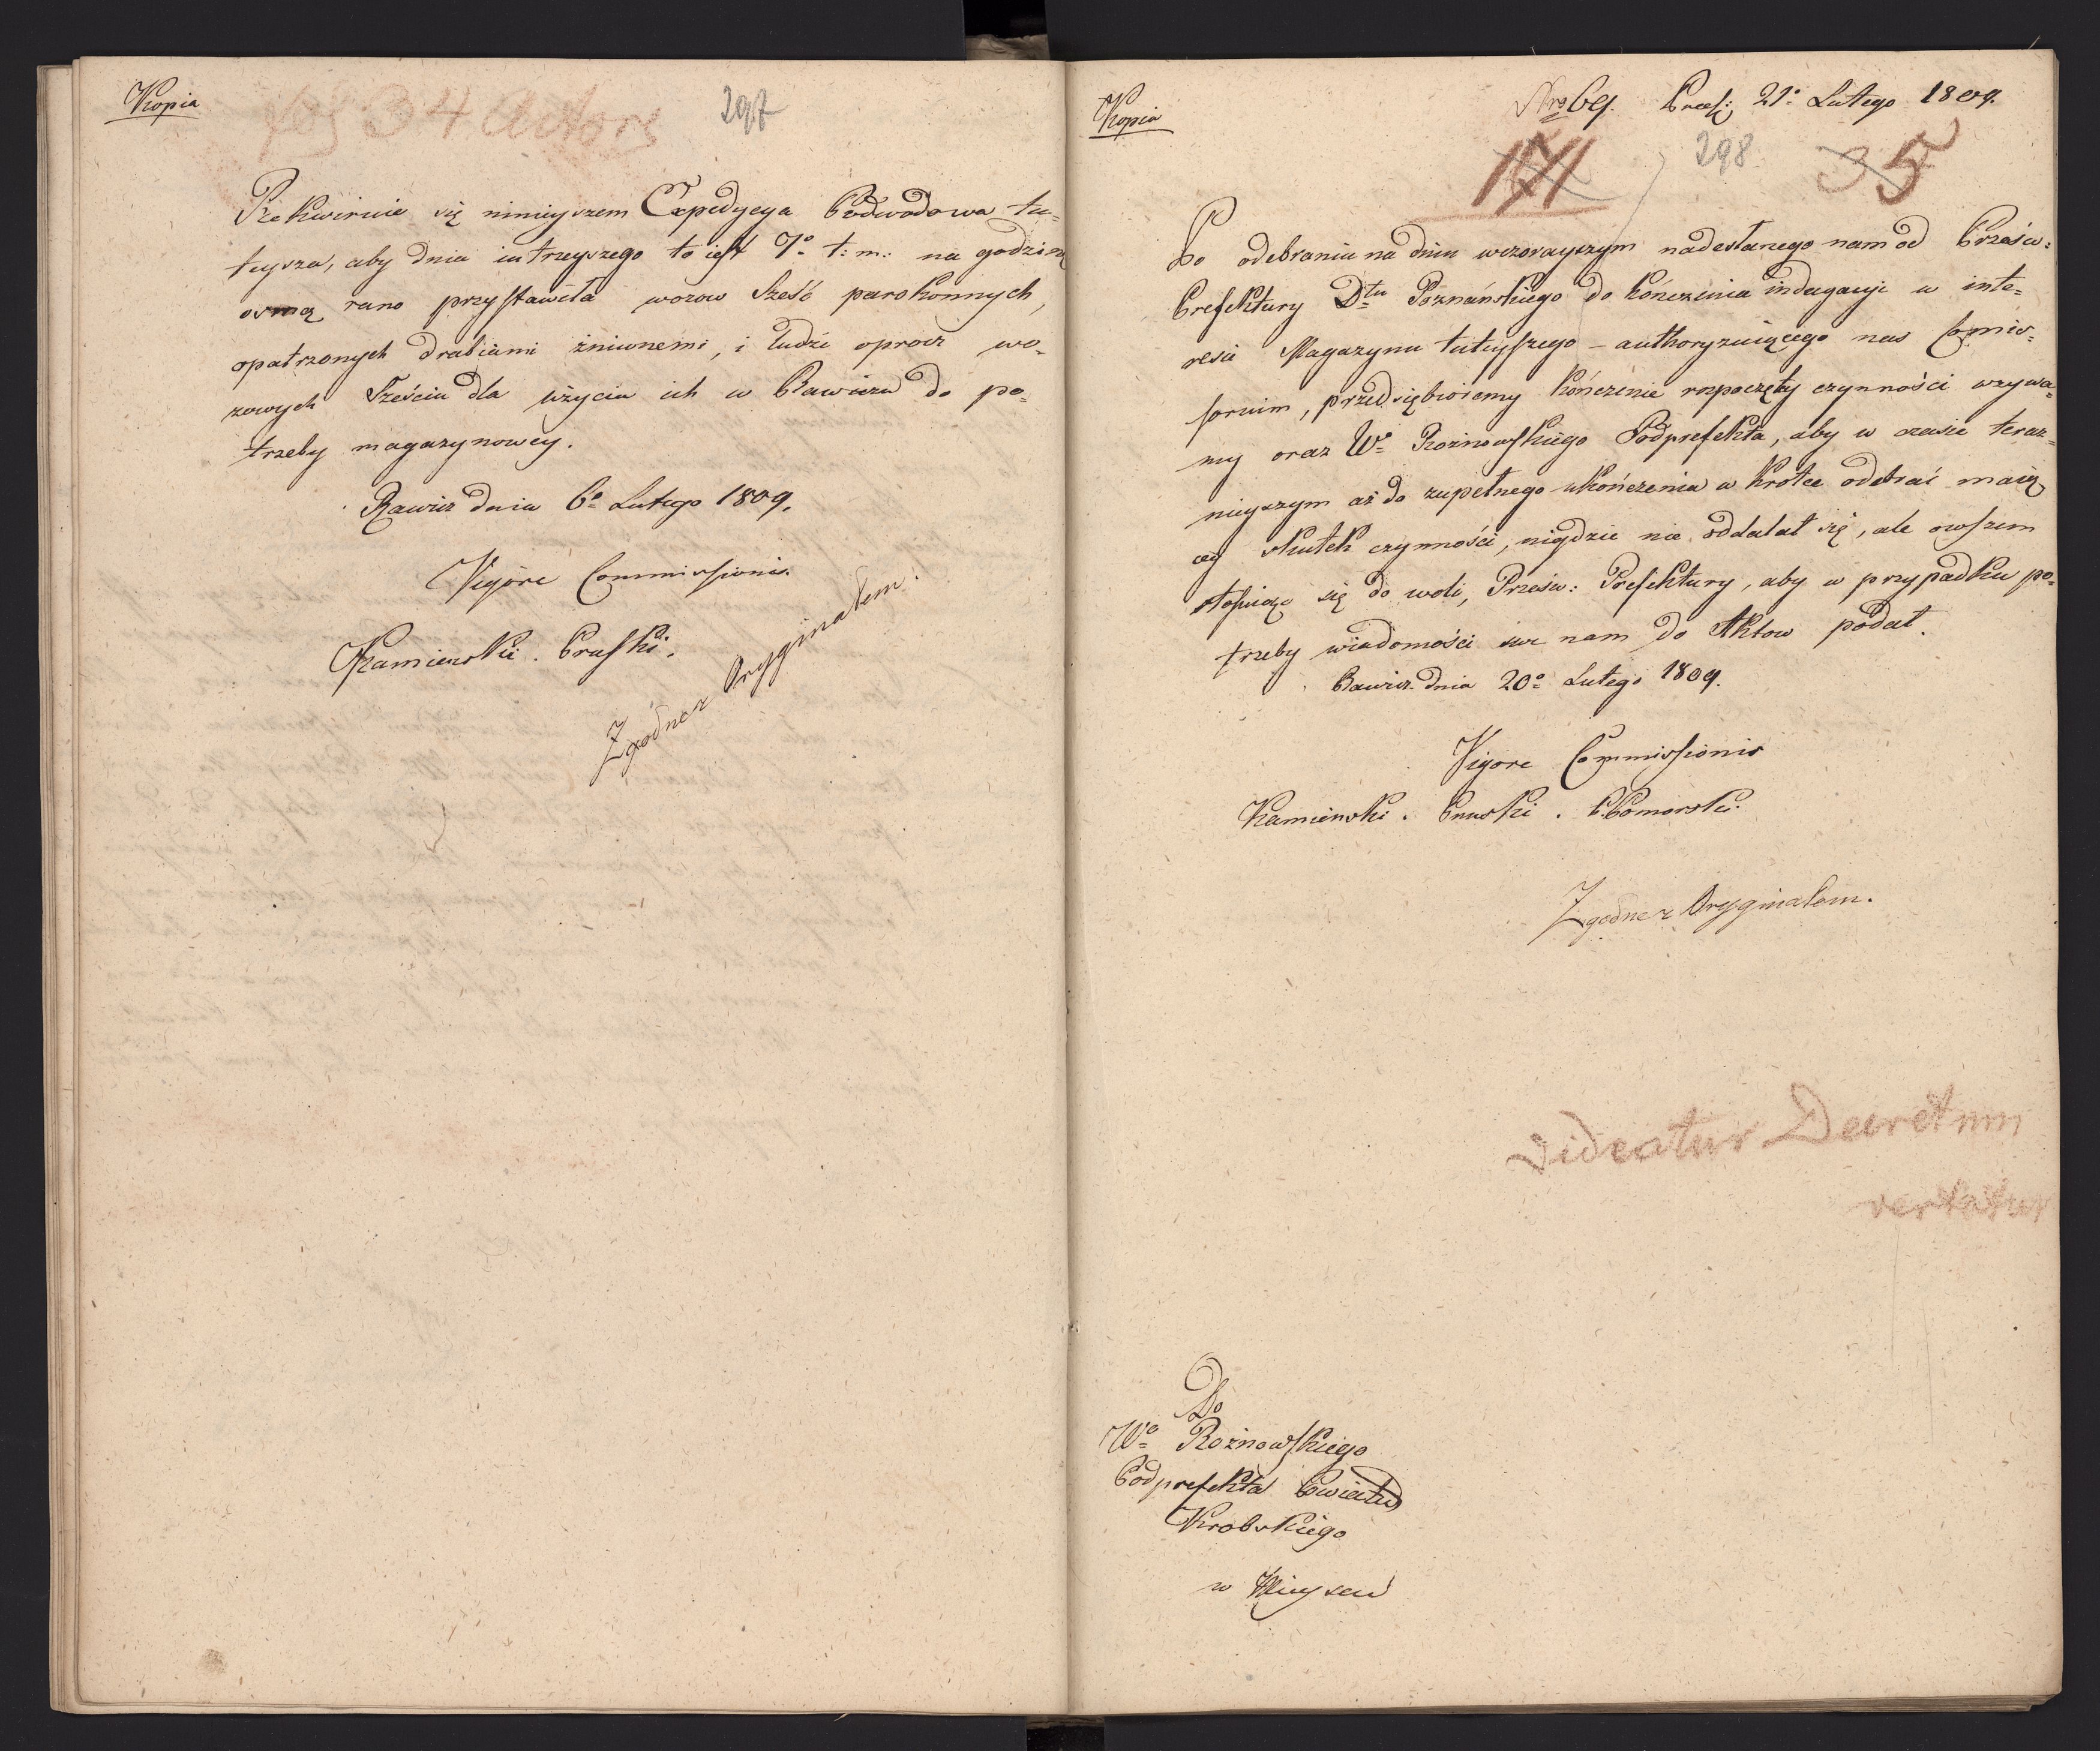 Kopia
fol 34 Actor
297
Rekwiruie się ninieyszem Expedycya Podwodowa tu=
teysza, aby dnia iutrzeyszego to iest 7º t: m: na godzinę
osmą rano przystawiła wozow sześć parokonnych,
opatrzonych drabiami żniwnemi, i ludzi oprocz wo=
zowych sześciu dla użycia ich w Rawiczu do po=
trzeby magazynowey.
Rawicz dnia 6º Lutego 1809.
Vigore Commissionis.
Kamienski. Pruski.
Zgodne z Oryginałem.
Kopia
Nro 69. Præs: 21º Lutego 1809.
171
298
35
Po odebraniu na dniu wczorayszym nadesłanego nam od Prześw:
Prefektury Dtu Poznańskiego do kończenia indagacyi w inte=
resie Magazynu tuteyszego – authoryzuiącego nas Comis=
sorium, przedsiębioremy kończenie rozpoczętey czynności wzywa=
my oraz Wº Rożnowskiego Podprefekta, aby w czasie teraz=
nieyszym aż do zupełnego ukończenia w krotce odebrać maią
cey skutek czynności, nigdzie nie oddalał się, ale owszem
stosuiąc się do woli, Prześw: Prefektury, aby w przypadku po=
trzeby wiadomości swe nam do Aktow podał.
Rawicz dnia 20º Lutego 1809.
Vigore Commissionis
Kamienski. Pruski. Pomorski.
Zgodne z Oryginałem.
Videatur Decretum
vertatur
Do
Wº Rożnowskiego
Podprefekta Powiatu
Krobskiego
w